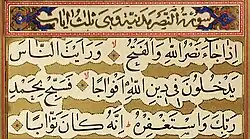 سورة النصر مدنية وهي ثلث ايات
اِذَا جَاءَ نَصْرُ اللّٰهِ وَالْفَتْحُ وَرَاَيْتَ النَّاسَ
يَدْخُلُونَ فِي دِينِ اللّٰهِ اَفْوَاجًا فَسَبِّحْ بِحَمْدِ
رَبِّكَ وَاسْتَغْفِرْهُ اِنَّهُ كَانَ تَوَّابًا